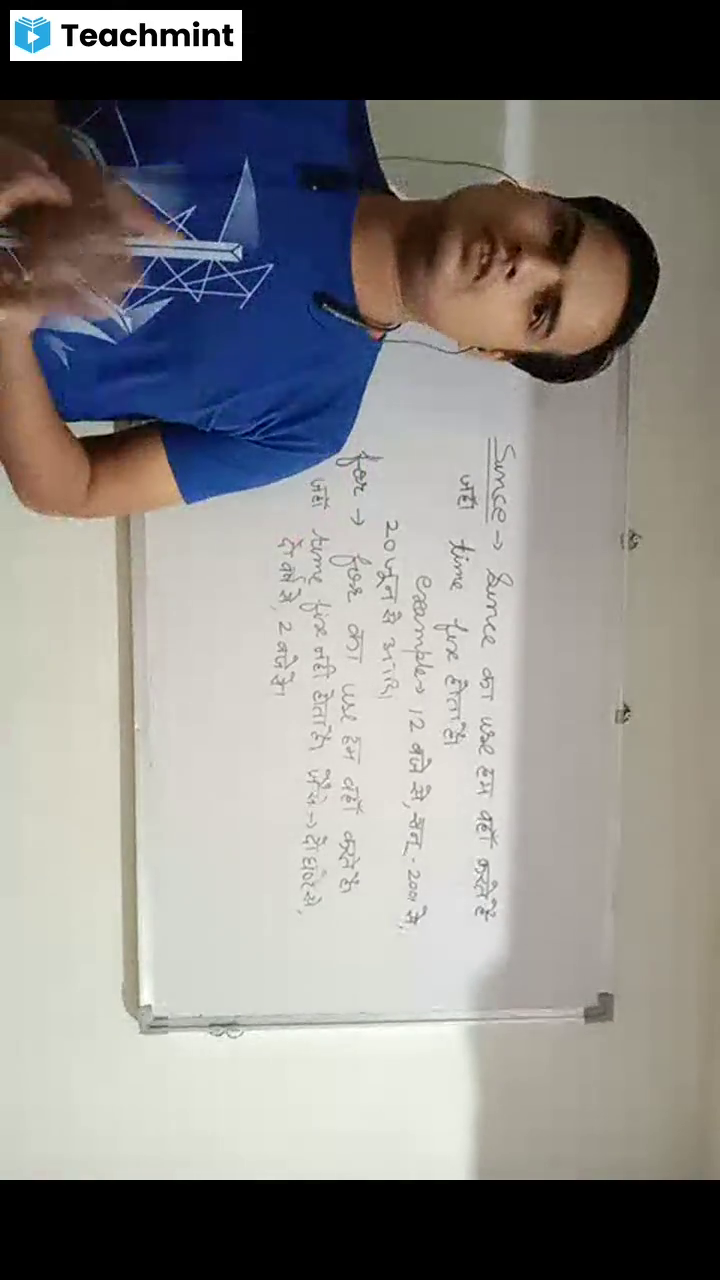 Teachmint
Since → Since का use हम वहाँ करते हैं
जहाँ time fix होता है।
example→ 12 बजे से, सन् - 2001 से,
20 जून से आदि।
for → for का use हम वहाँ करते है।
जहाँ time fix नही होता है। जैसे → दो घण्टे से,
दो वर्ष से, 2 बजे से।